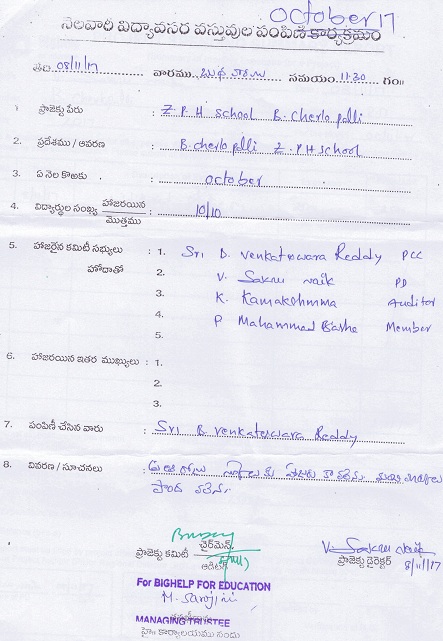 October 17
నెలవారీ విద్యావసర వస్తువుల పంపిణి కార్యక్రమం
తేది 08/11/17 వారము బుధవారము సమయం 11.30 గం॥
1. ప్రాజెక్టు పేరు : Z.P.H school B. Cherlopalli
2. ప్రదేశము / ఆవరణ : B. cherlopalli Z.P.H school
3. ఏ నెల కొఱకు : october
4. విద్యార్థుల సంఖ్య హాజరయిన / మొత్తము : 10/10
5. హాజరైన కమిటీ సభ్యులు హోదాతో : 1. Sri B. venkateswara Reddy PCC
2. V. Sakru naik PD
3. K. Kamakshmma Auditor
4. P Mahammad Basha Member
5.
6. హాజరయిన ఇతర ముఖ్యులు : 1.
2.
3.
7. పంపిణీ చేసిన వారు : Sri B. venkateswara Reddy
8. వివరణ / సూచనలు :
ప్రాజెక్టు కమిటీ చైర్మెన్
ఆడిటర్
V. Sakru Naik
ప్రాజెక్టు డైరెక్టర్ 8/11/17
For BIGHELP FOR EDUCATION
M. Sarojini
MANAGING TRUSTEE
హై॥ కార్యాలయము నందు